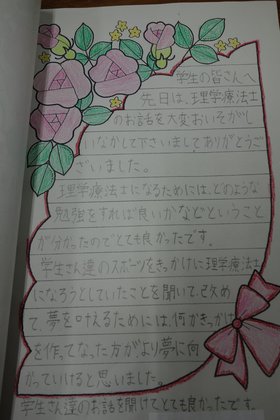 学生の皆さんへ
先日は、理学療法士
のお話を大変おいそがし
いなかして下さいましてありがとうご
ざいました。
理学療法士になるためには、どのような
勉強をすれば良いかなどということ
が分かったのでとても良かったです。
学生さん達のスポーツをきっかけに理学療法士
になろうとしていたことを聞いて、改め
て、夢を叶えるためには、何かきっかけ
を作ってなった方がより夢に向
かっていけると思いました。
学生さん達のお話を聞けてとても良かったです。